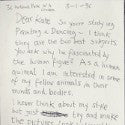 3-1-96
Dear Kate So you're studying
Painting & Dancing - I think
they are the best subjects.
You ask why I'm fascinated by
the human figure? As a human
animal I am interested in some
of my fellow animals in their
minds and bodies.
I never think about my style
but just try and make
the pictures look